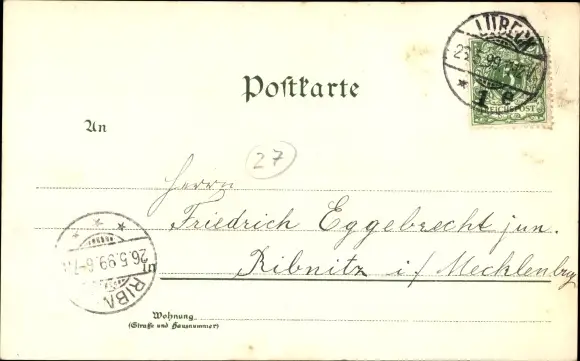 LÜBECK
1 e
REICHSPOST
Postkarte
An
27
Herrn
Friedrich Eggebrecht jun.
In Ribnitz i/ Mecklenburg
26.5.99.6-7
RIBN
Wohnung
(Straße und Hausnummer)